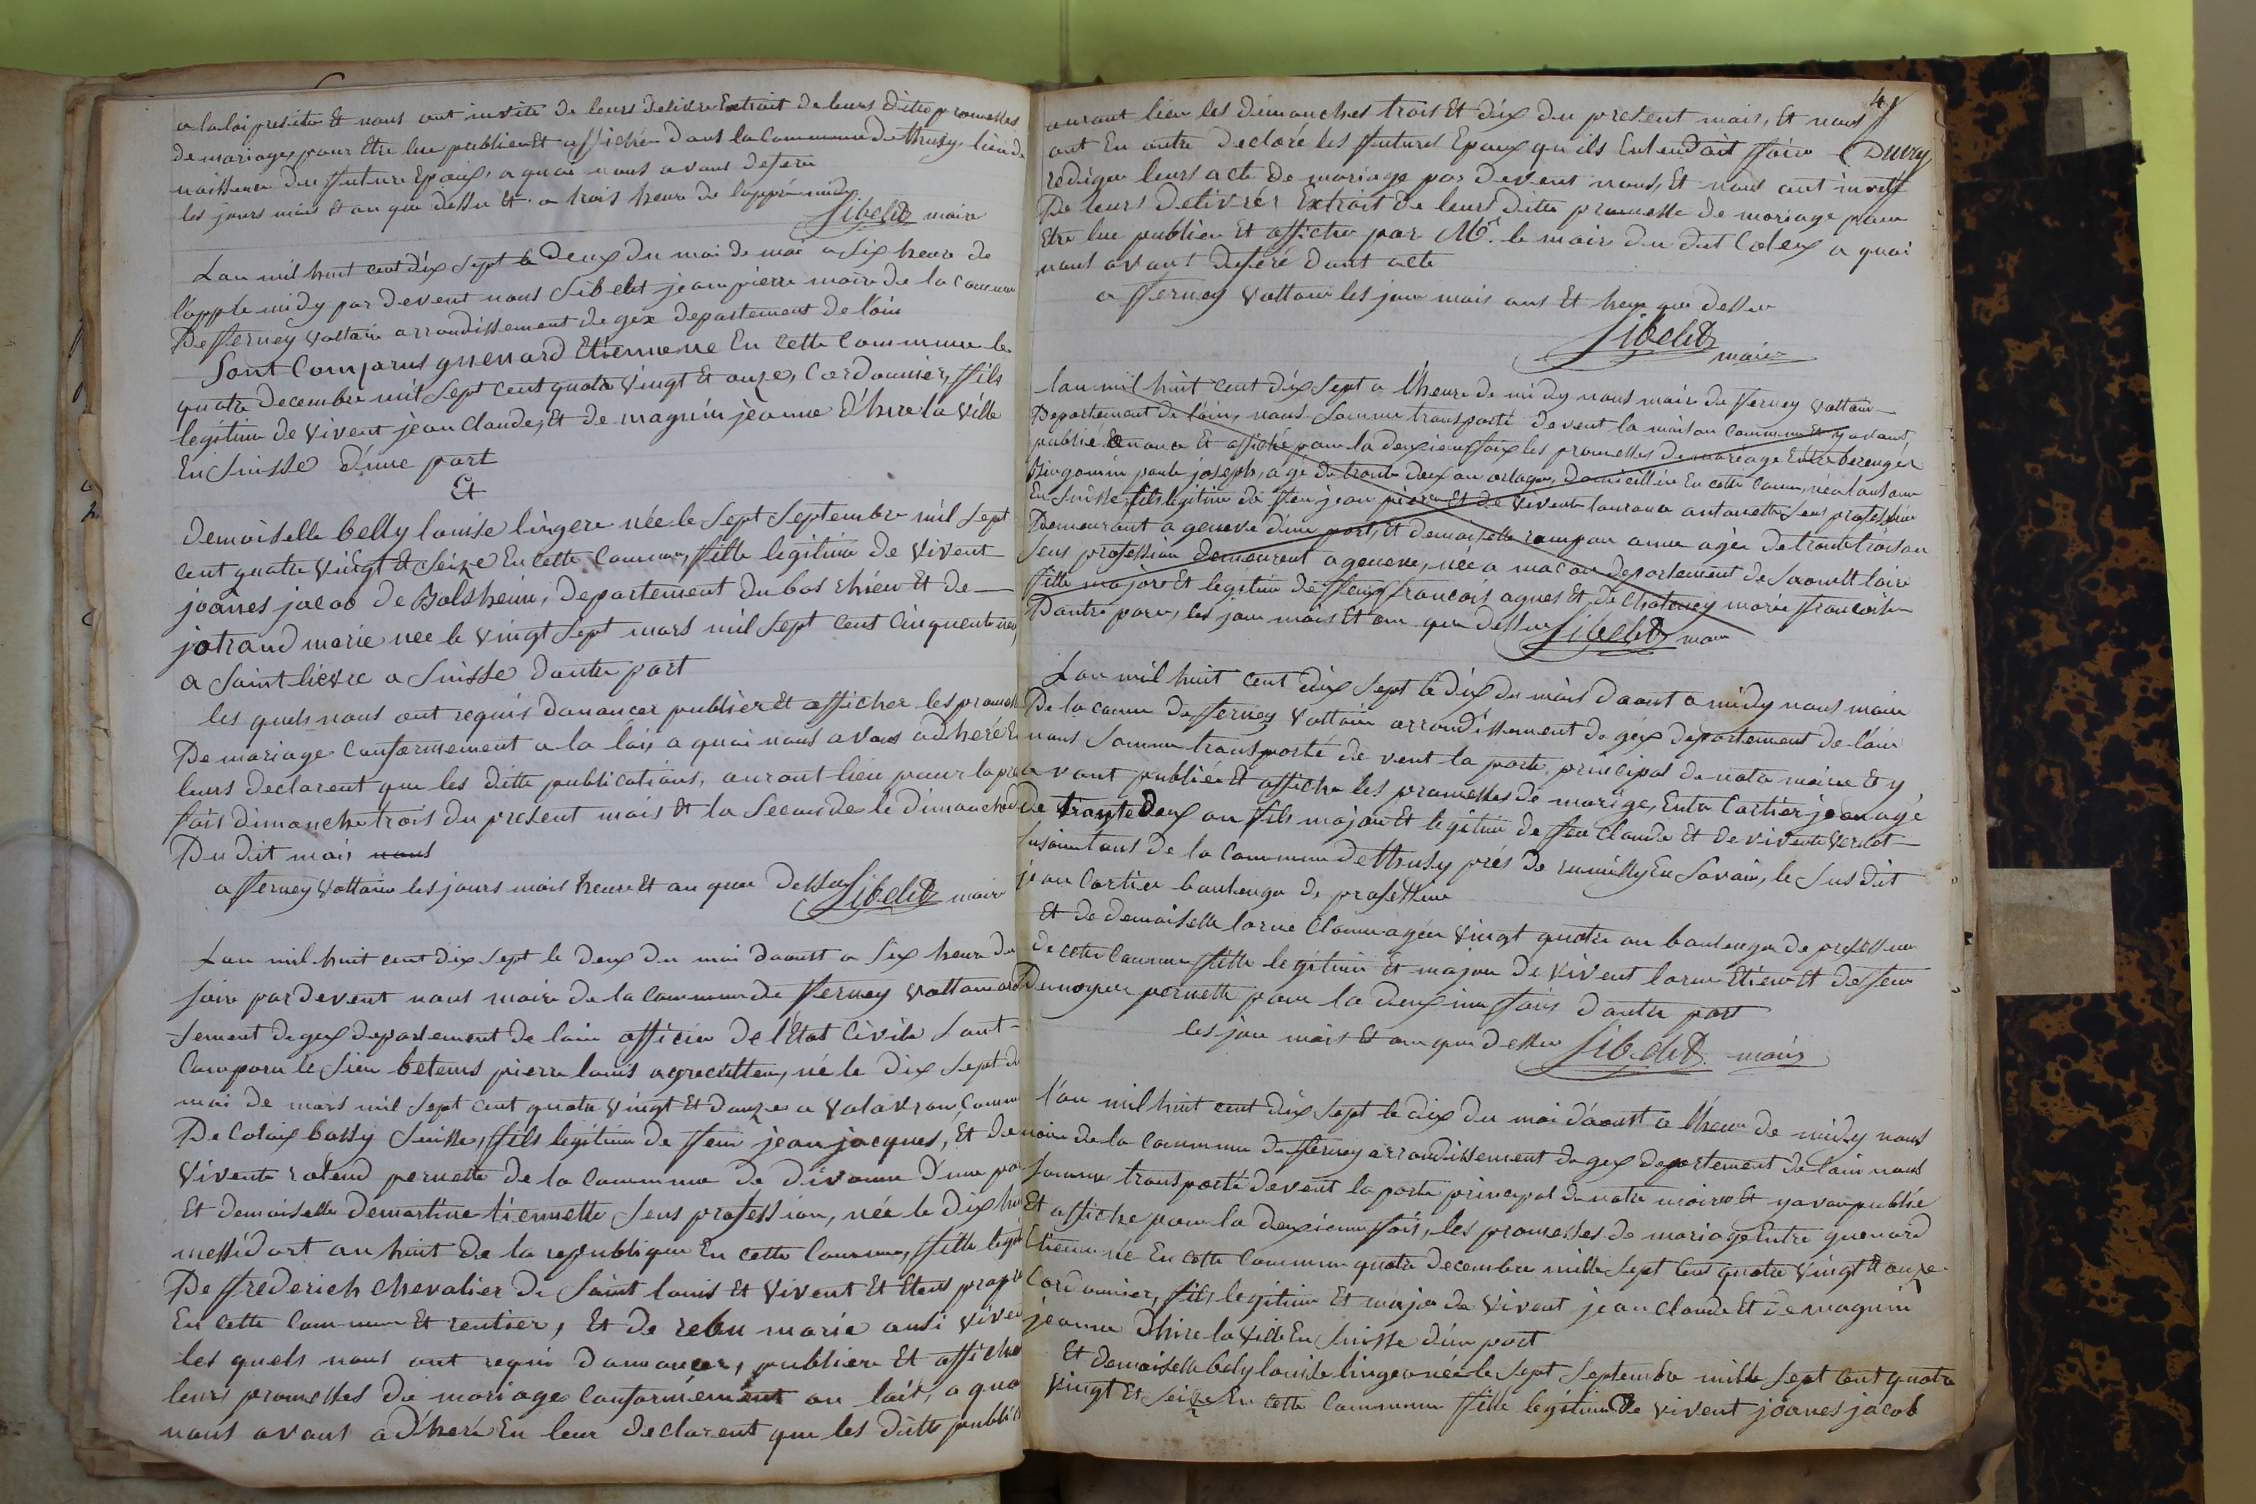 a la loi presite et nous ont invité de leurs delivre Extrait de leurs ditte promesses
de mariages, pour Etre lue publier Et affichér dans la Commune de thusy, lieu de
naissance du ffuture Epoux, a quoi nous avons deferé
les jours mois et an que dessu et a trois heure de lappré midy
Sibelet maire
Lan mil huit cent dix sept le deux du moi de mai a six heure de
lappre midy par devent nous Sibelet jean pierre maire de la Commune
De fferney Voltaire arrondissement de gex departement de l'ain
Sont Comparus guenard Etiennene En cette Commune le
quatre decembre mil sept cent quatre vingt et onze, Cordonnier, ffils
legitime de vivent jean claude, Et de magnin jeanne d'hire la ville
En Suisse d'une part
Et
Demoiselle belly louise lingere née le sept septembre mil sept
cent quatre vingt et seize En cette Commune, ffille legitime de vivent
joanes jacob de Bolsheim, departement du bas rhien Et de
jotrand marie nee le vingt sept mars mil sept cent cinquente neu
a saint lievre a Suisse dautre part
les quels nous ont requis danoncer publier et afficher les promess
De mariage Conformement a la loi, a quoi nous avons adherér
leurs declarent que les ditte publications, auront lieu pour la pre
fois dimanche trois du present mois et la Seconde le dimanche d
Du dit mois nous
a fferney Voltaire les jours mois heure Et an que dessu Sibelet maire
Lan mil huit cent dix sept le deux du moi daoust a six heure du
soire par devent nous maire de la commune de fferney Voltaire aro
sement de gex departement de lain officier de l'Etat Civile Sont
Comparu le sieu betems pierre louis agreculteur, né le dix sept d
moi de mars mil sept cent quatre vingt Et douze a valavran, Comm
De Colaix bossy Suisse, ffils legitime de ffeu jean jacques, Et de
vivente roland pernette de la commune de divonne d'une pa
Et demoiselle demartine tiennette sens profession, née le dix hu
messidort an huit de la republique En cette Commune, ffille legi
De ffrederich chevalier de saint louis Et vivent Et Etens propr
En cette Commune Et rentier, Et de rebu marie ausi viven
les quels nous ont requi d'anoncer, publier Et affiche
leurs promesses de mariage Conformément au loit, a quo
nous avons adheré En leur declarent que les ditte public
4
auront lieu les dimanches trois Et dix du present mois, Et nous
ont En outre declaré les ffuturs Epoux qu'ils Entendait ffaire Duvry
rediger leurs acte de mariage par devent nous, Et nous ont invite
De leurs delivrér Extrait de leurs ditte promesse de mariage pour
Etre lue publier Et affiche par Mr. le maire du dit Colex a quoi
nous avons deferé dont acte
a fferney Voltaire les jour mois ans Et heur que dessu
Sibelet maire
lan mil huit cent dix sept a l'heure de midy nous maire de fferney voltaire
Departement de l'ain, nous somme transporté devent la maison Commune Et y avons
publié Et affiché pour la deuxieme ffois les promesses de mariage Entre berenger
paule joseph, agé de trente deux an orloger, domicillié En cette Commu, né a lausanne
En Suisse fils legitime de ffeu jean pierre Et de vivente antoinette sens profession
Demeurant a geneve d'une part, Et demoiselle rampon anne agée de trente trois an
sens profession demeurent a geneve, née a macon departement de saonett loire
ffille majore Et legitime de ffeu ffrancois agnes Et de Chateney marie ffrancoise
Dautre part, les jour mois Et an que dessu Sibelet maire
Lan mil huit cent dix sept le dix du mois daout a midy nous maire
De la comm de fferney Voltaire arrondissement de gex departement de l'ain
nous somme transporté de vent la porte principal de notre mairie et y
avont publié Et affiche les promesses de mariage, Entre Cartier jean agé
de trente deux an ffils majore Et legitime de ffeu claude Et de vivente verlot
de la commune de thusy près de rumilly En Savoie, le sus dit
jean Cartier boulenger de profession
Et de demoiselle lorne Claune agée vingt quatre an boulenger de profession
de cette Commune ffille legitime Et majore de vivent lorne Etiene et de ffeu
Dunoyer pernette pour la deuxieme ffois d'autre part
les jour mois Et an que dessu Sibelet maire
l'an mil huit cent dix sept le dix du moi d'aoust a l'heure de midy nous
maire de la commune de fferney arrondissement de gex departement de lain nous
somme transporté devent la porte principal de notre mairie Et y avon publié
Et affiche pour la deuxieme ffois, les promesses de mariage Entre guenard
Etienne né En cette Commune quatre decembre mille sept cent quatre vingt et onze
Cordonnier, ffils legitime Et major de vivent jean claude Et de magnin
jeanne d'hire la ville En Suisse d'une part
Et demoiselle bely louise lingere née le sept septembre mille sept cent quatre
vingt Et seize En cette Commune ffille legitime De vivent joanes jacob